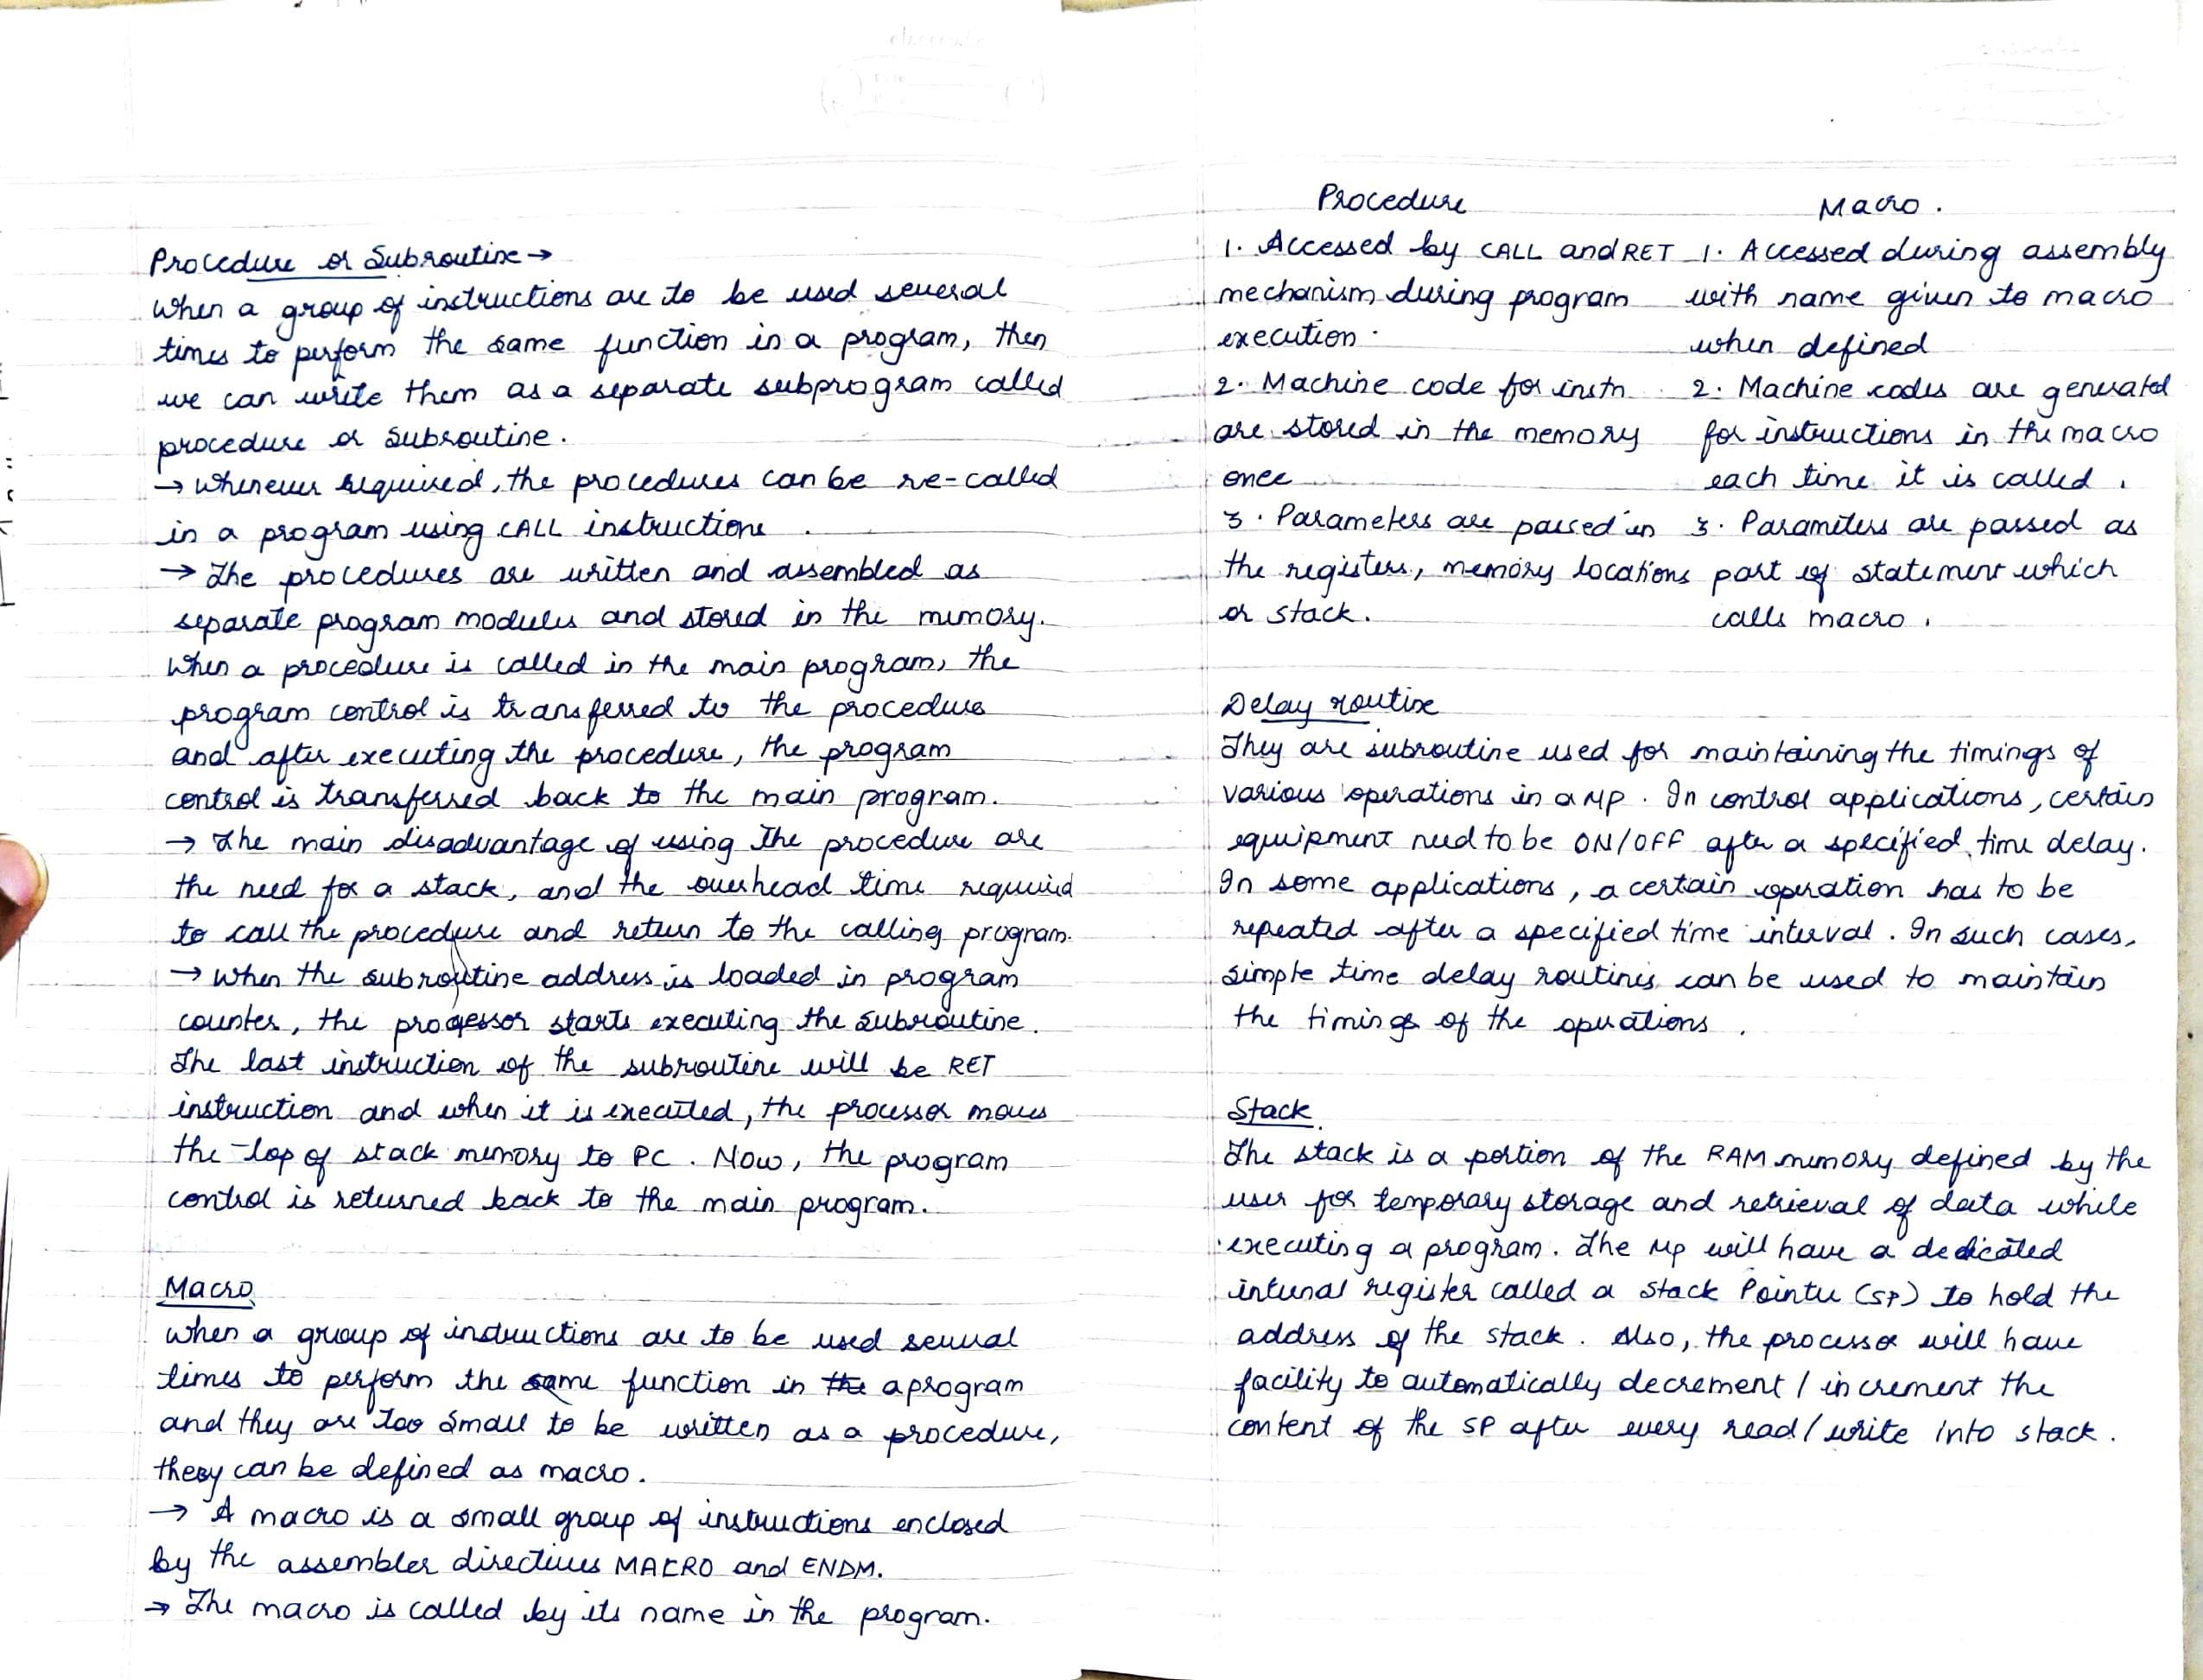 Procedure or Subroutine →
When a group of instructions are to be used several
times to perform the same function in a program, then
we can write them as a separate subprogram called
procedure or subroutine.
→ Whenever required, the procedures can be re-called
in a program using CALL instructions.
→ The procedures are written and assembled as
separate program modules and stored in the memory.
When a procedure is called in the main program, the
program control is transferred to the procedure
and after executing the procedure, the program
control is transferred back to the main program.
→ The main disadvantage of using the procedure are
the need for a stack, and the overhead time required
to call the procedure and return to the calling program.
→ When the subroutine address is loaded in program
counter, the processor starts executing the subroutine.
The last instruction of the subroutine will be RET
instruction and when it is executed, the processor moves
the top of stack memory to PC. Now, the program
control is returned back to the main program.
Macro
When a group of instructions are to be used several
times to perform the same function in the a program
and they are too small to be written as a procedure,
they can be defined as macro.
→ A macro is a small group of instructions enclosed
by the assembler directives MACRO and ENDM.
→ The macro is called by its name in the program.
Procedure Macro.
1. Accessed by CALL and RET 1. Accessed during assembly
mechanism during program with name given to macro
execution. when defined
2. Machine code for instn 2. Machine codes are generated
are stored in the memory for instructions in the macro
once each time it is called.
3. Parameters are passed in 3. Parameters are passed as
the registers, memory locations part of statement which
or stack. calls macro.
Delay routine
They are subroutine used for maintaining the timings of
various operations in a μP. In control applications, certain
equipment need to be ON/OFF after a specified time delay.
In some applications, a certain operation has to be
repeated after a specified time interval. In such cases,
simple time delay routines can be used to maintain
the timings of the operations.
Stack
The stack is a portion of the RAM memory defined by the
user for temporary storage and retrieval of data while
executing a program. The μp will have a dedicated
internal register called a Stack Pointer (SP) to hold the
address of the stack. Also, the processor will have
facility to automatically decrement / increment the
content of the SP after every read/write into stack.